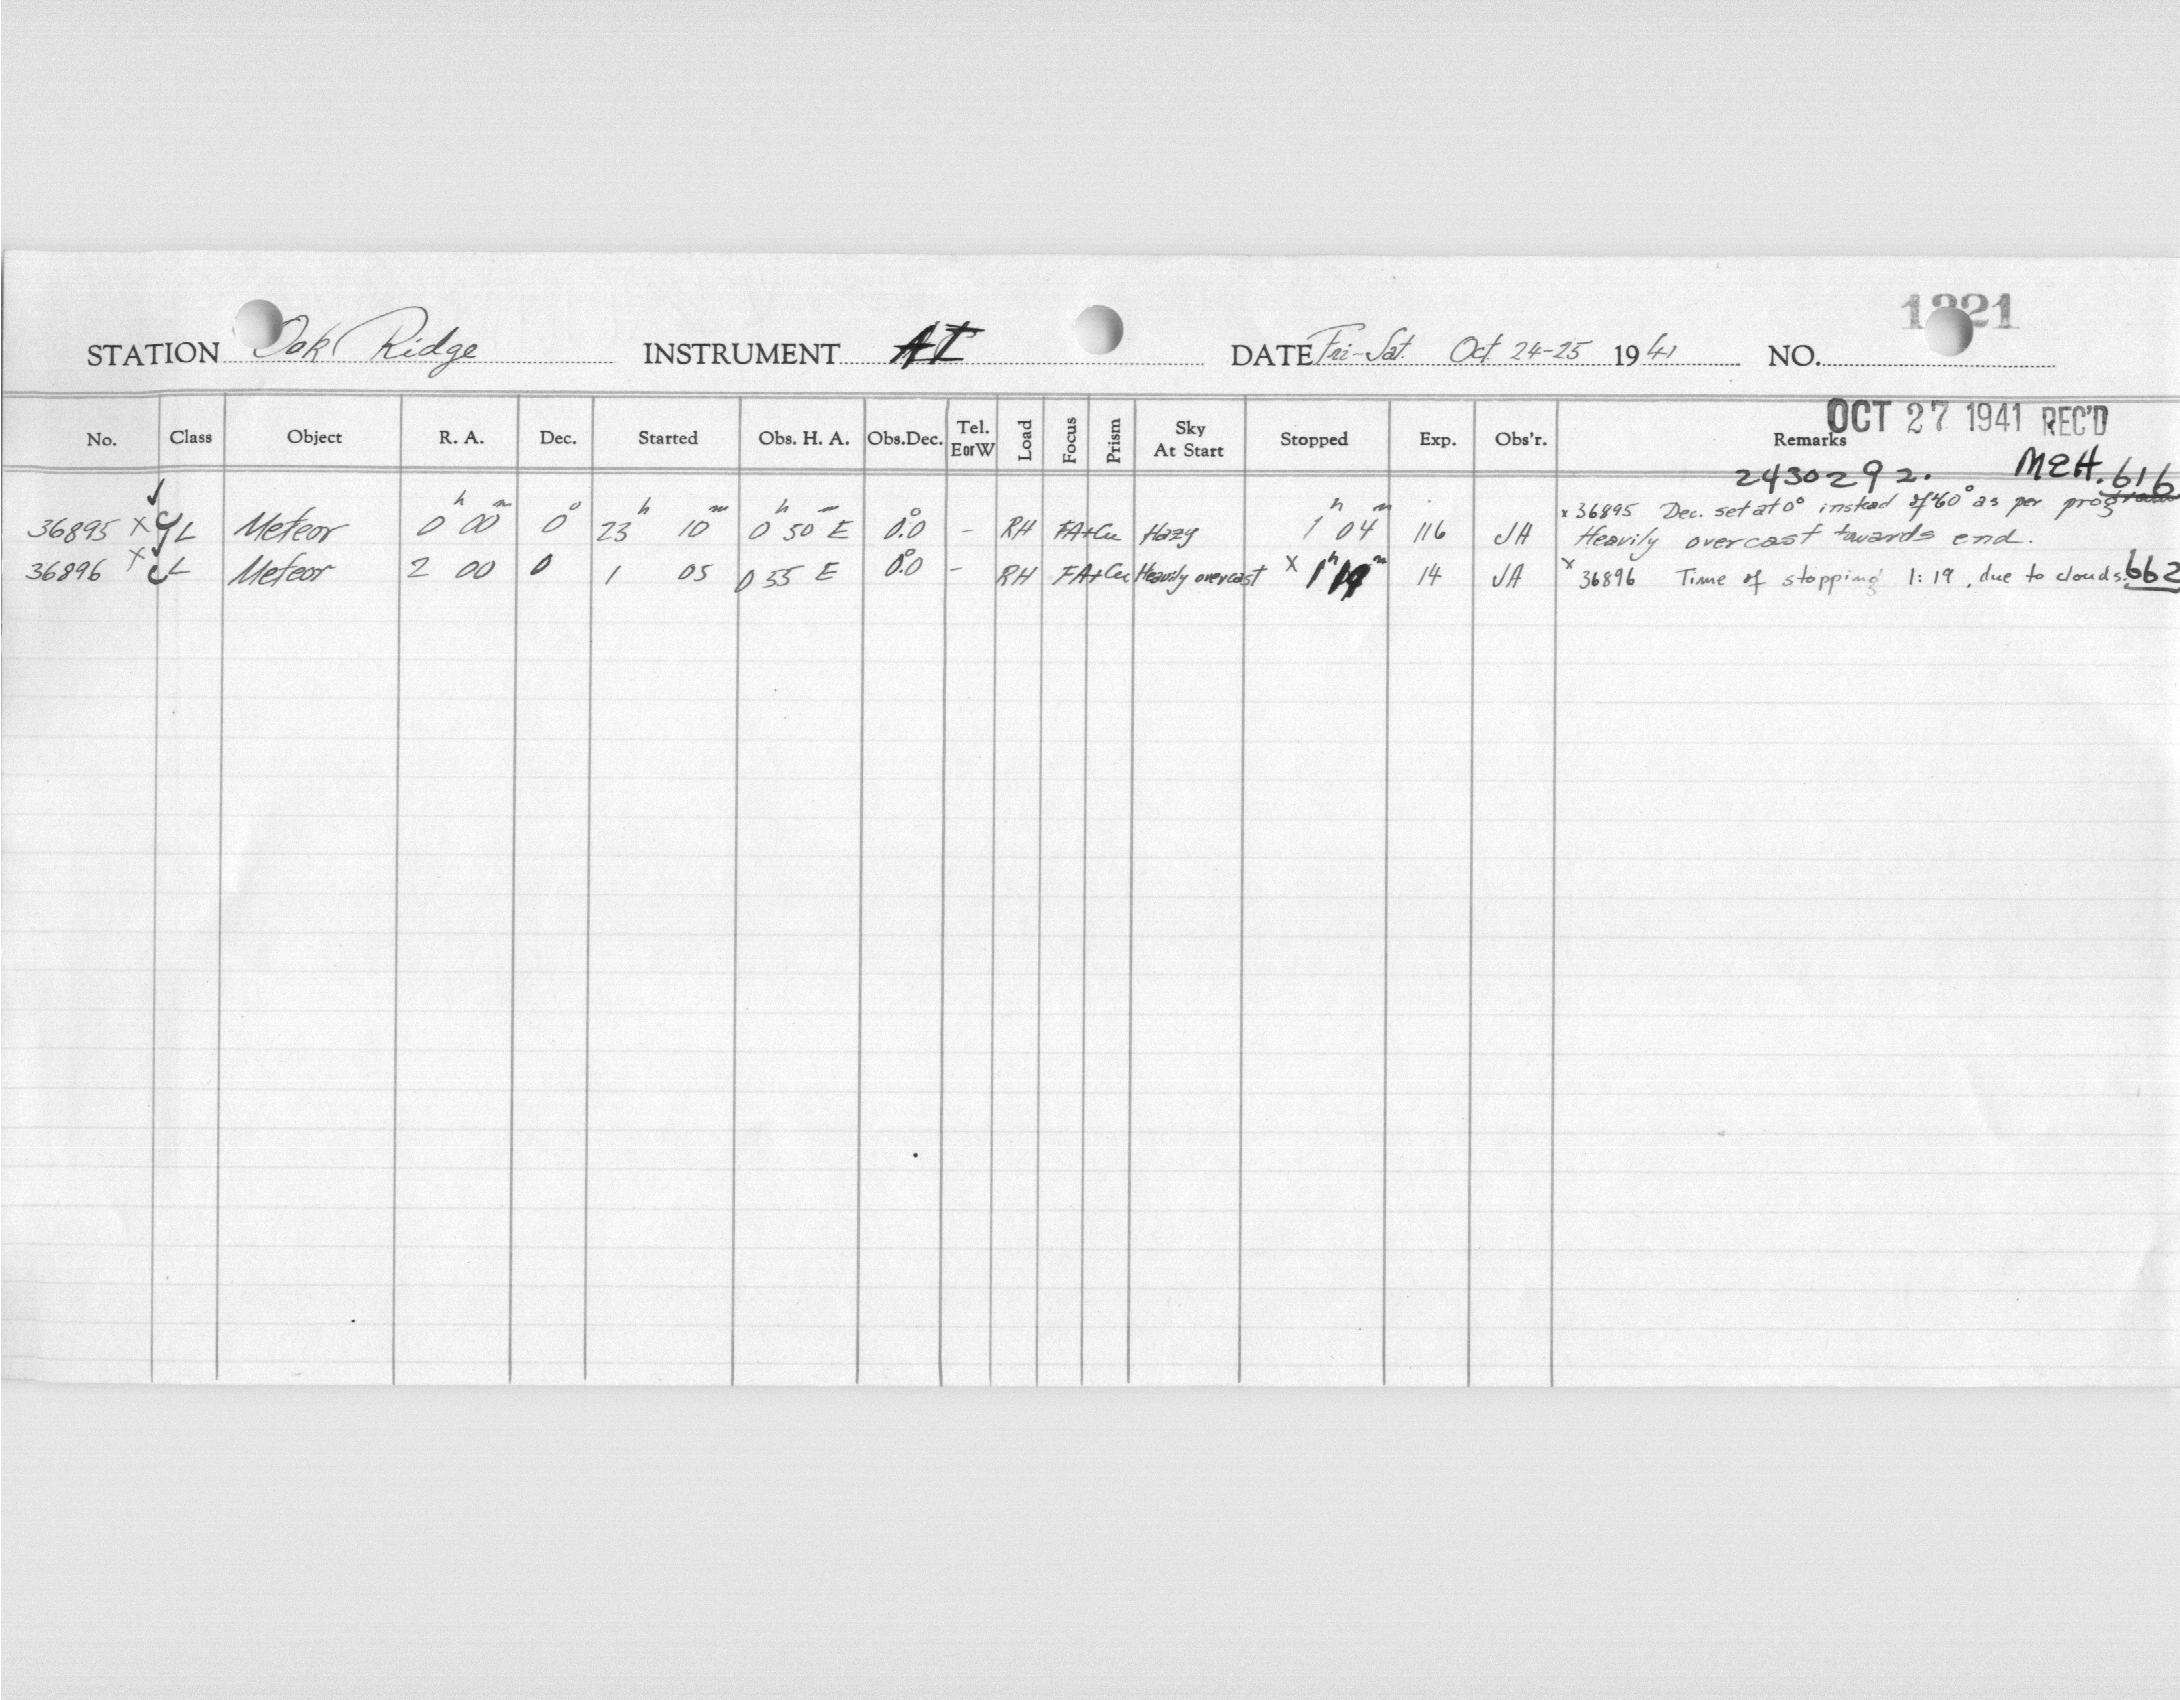 1321
STATION Oak Ridge INSTRUMENT AI DATE Fri-Sat. Oct 24-25 1941 NO.
OCT 27 1941 REC'D
No. Class Object R. A. Dec. Started Obs. H. A. Obs.Dec. Tel. E or W Load Focus Prism Sky At Start Stopped Exp. Obs'r. Remarks
2430292. MEH.
36895 x L Meteor 0h 00m 0° 23h 10m 0h 50m E 0.°0 - RH FA+Cu Hazy 1h 04m 116 JA x 36895 Dec. set at 0° instead of 60° as per program .616
Heavily overcast towards end.
36896 x L Meteor 2 00 0 1 05 0 55 E 0.°0 - RH FA+Cu Heavily overcast x 1h 19m 14 JA x 36896 Time of stopping 1:19, due to clouds. .662